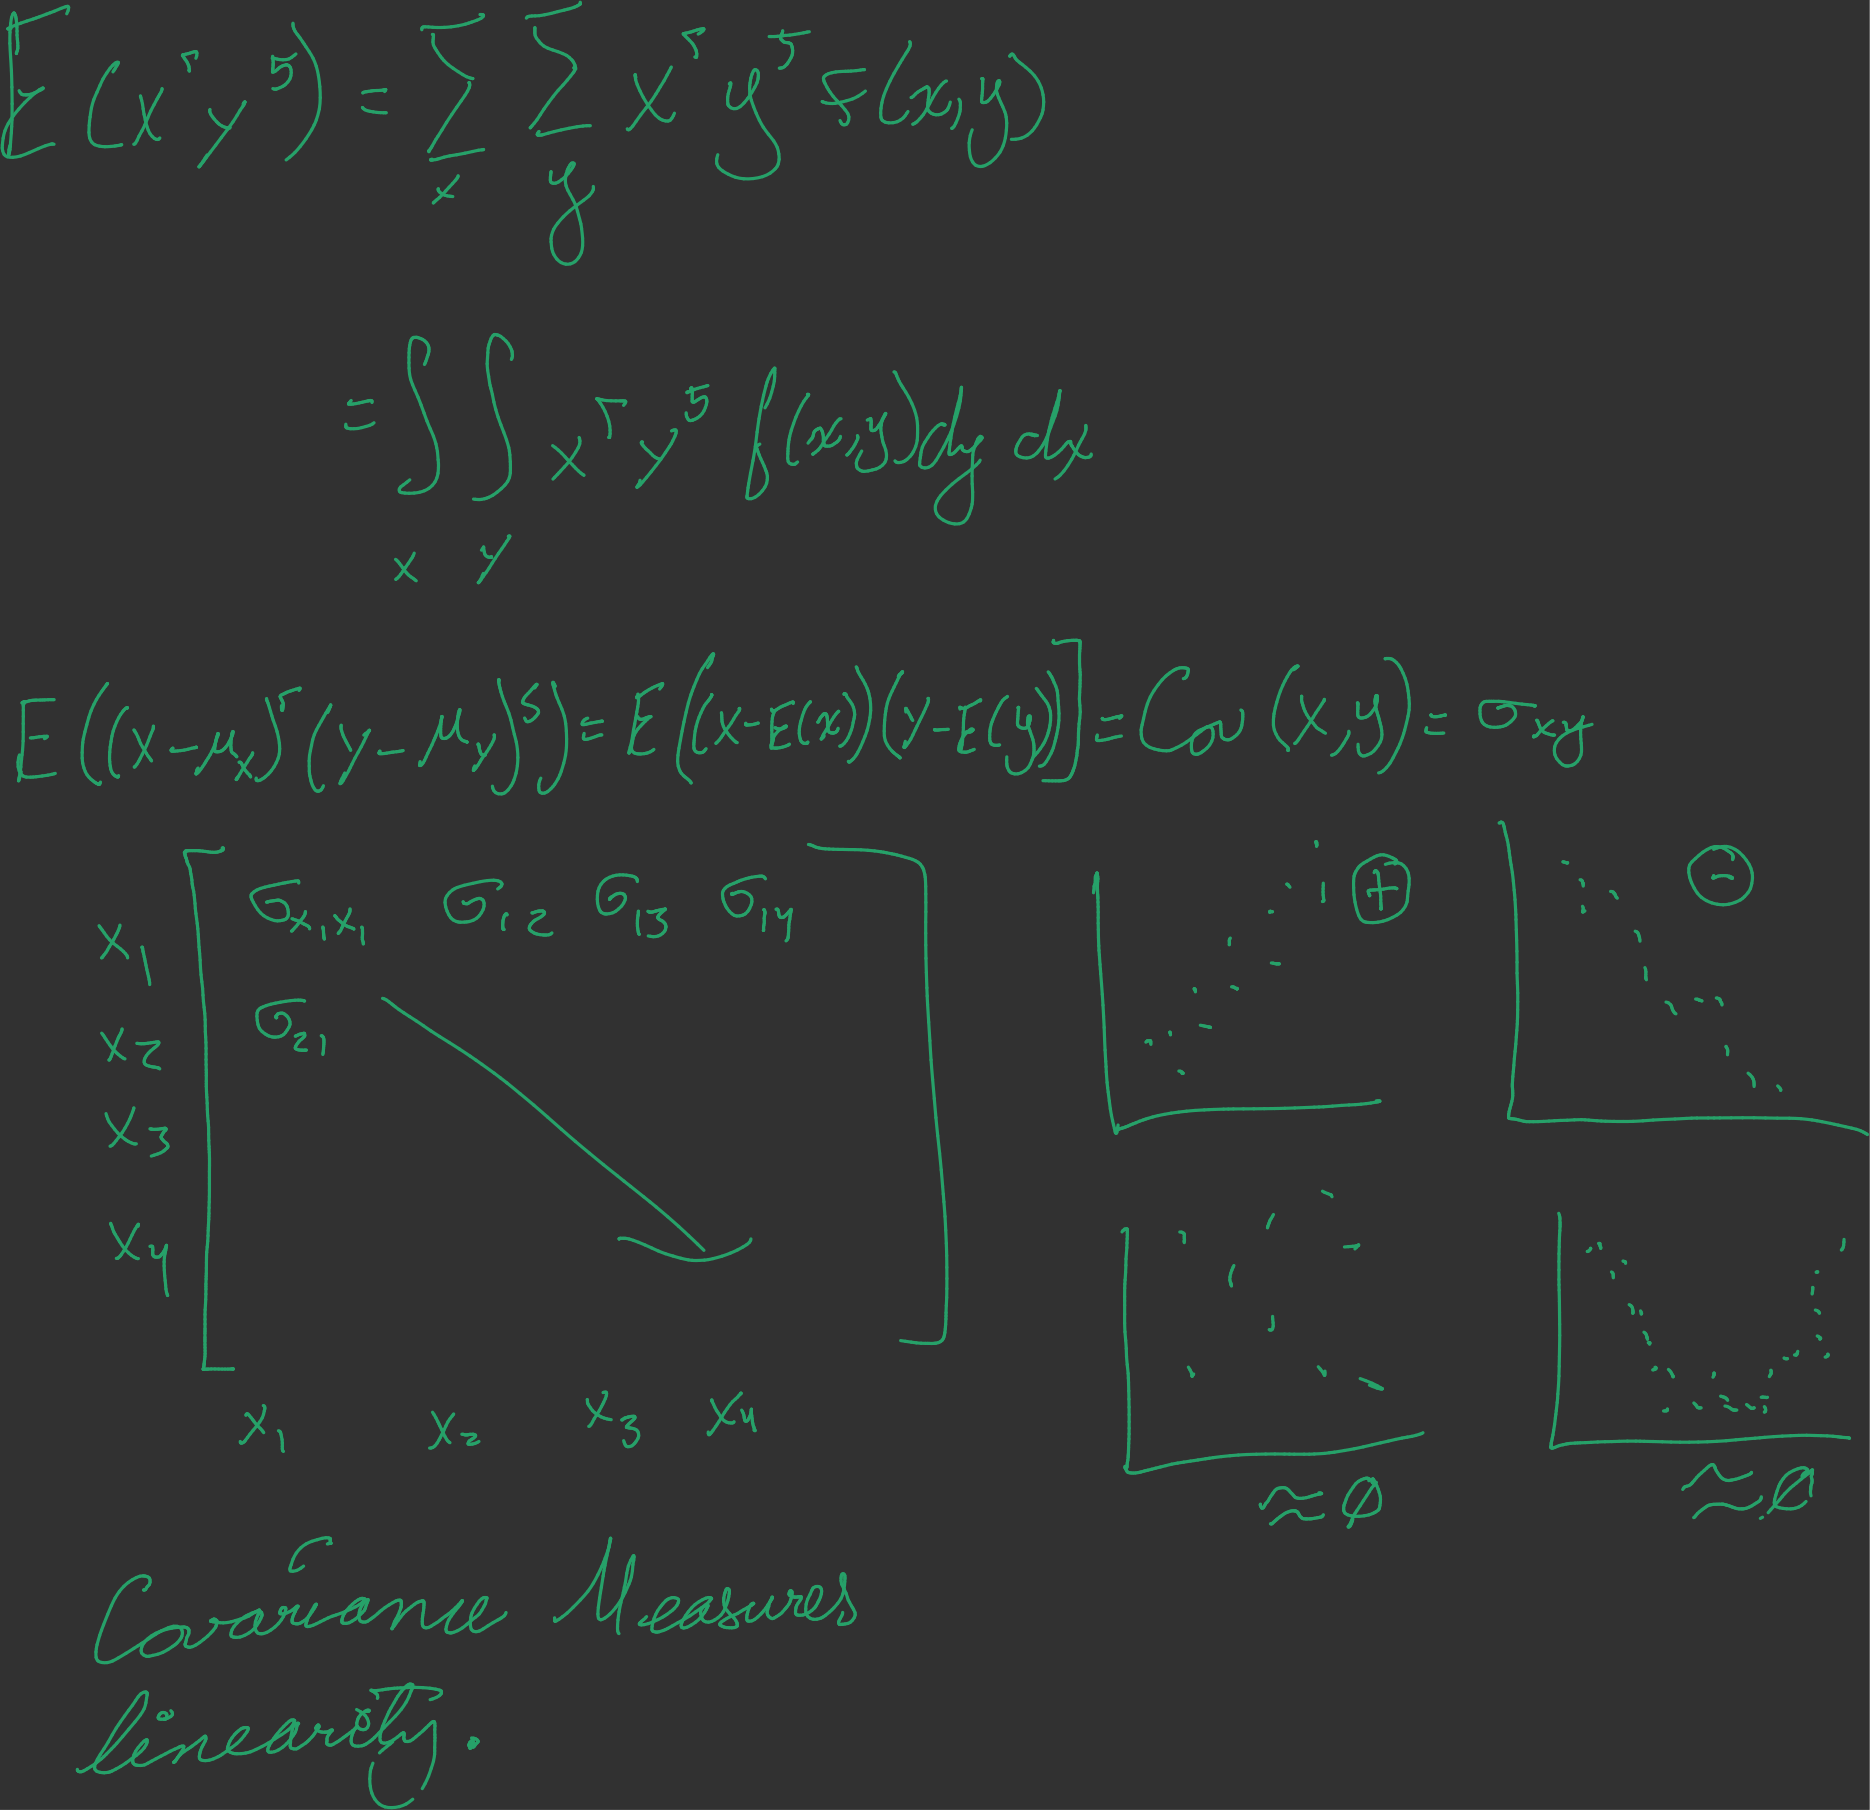 E(X^r Y^s) = Σ_x Σ_y x^r y^s f(x,y)
= ∫_x ∫_y x^r y^s f(x,y) dy dx
E((X-μ_x)^r (Y-μ_y)^s) = E((X-E(x))(Y-E(y))] = Cov (X,Y) = σ_xy
x_1 σ_x_1x_1 σ_12 σ_13 σ_14
x_2 σ_21
x_3
x_4
x_1 x_2 x_3 x_4
+
-
≈ 0
≈ 0
Covariance Measures
linearity.